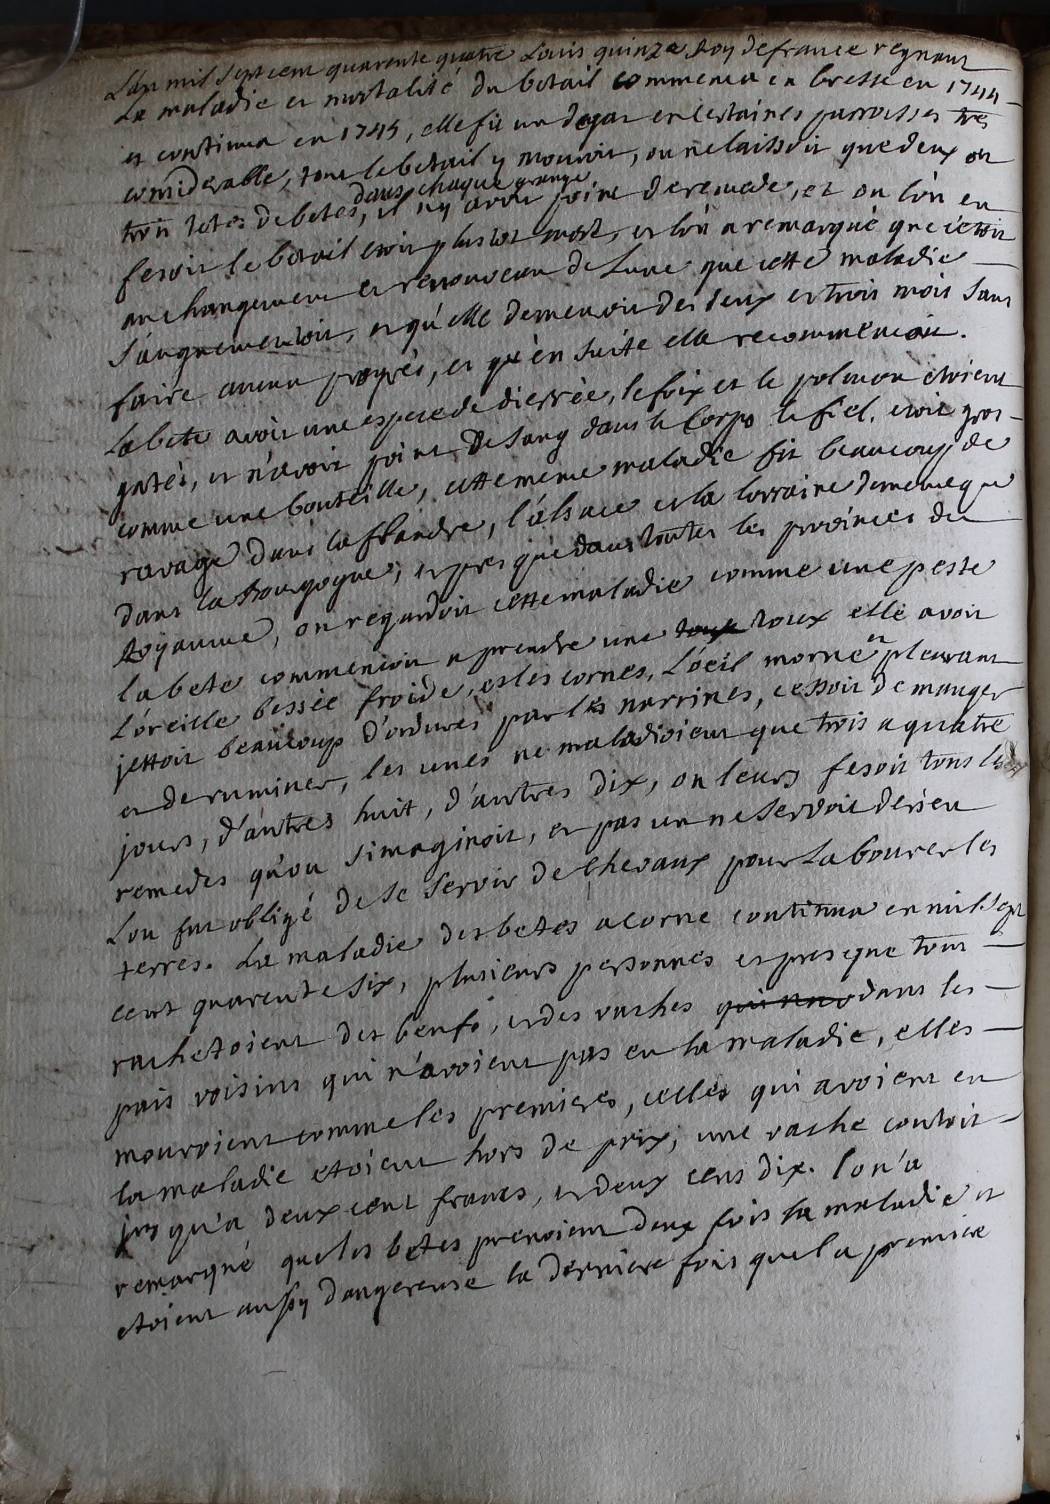 L'an mil sept cent quarente quatre Louis quinze Roy de france regnant
La maladie et mortalité du betail commenca en bresse en 1744
et continua en 1745, elle fit un degat en certaines parroisses tres
considerable, tout le betail y mouroit, on ne laissoit que deux ou
trois tetes de betes dans chaque grange, il n'y avoit point de remede, et ou l'on en
fesoit le betail etoit plustot mort, et l'on a remarqué que c'etoit
au changement et renouveau de Lune que cette maladie
s'augmentoit, et qu'elle demeuroit des deux et trois mois sans
faire aucun progrés, et qu'en suite elle recommencoit.
la bete avoit une espece de dierrée, le foix et le polmon etoient
gatés, et n'avoit point de sang dans le Corps le fiel etoit gros
comme une bouteille, cette meme maladie fit beaucoup de
ravage dans la flandre, l'alsace et la lorraine de meme que
dans la Bourgogne, et presque dans toutes les provinces du
Royaume, on regardoit cette maladie comme une peste
la bete commencoit a prendre une toux toux elle avoit
L'oreille bessée froide, et les cornes, L'oeil morne et pleurant
jettoit beaucoup d'ordures par les narrines, cessoit de manger
et de ruminer, les unes ne maladioient que trois a quatre
jours, d'autres huit, d'autres dix, on leurs fesoit tous les
remedes qu'on s'imaginoit, et pas un ne servoit de rien
L'on fut obligé de se servir de Chevaux pour Labourer les
terres. La maladie des betes a corne continua en mil sept
cent quarente six, plusieurs personnes et presque tous
rachetoient des beufs, et des vaches qui dans les
pais voisins qui n'avoient pas eu la maladie, elles
mouroient comme les premieres, celles qui avoient eu
la maladie etoient hors de prix, une vache coutoit
jusqu'a deux cent francs, et deux cens dix. l'on a
remarqué que les betes prenoient deux fois la maladie et
etoient aussy dangereuse la derniere fois que la premiere